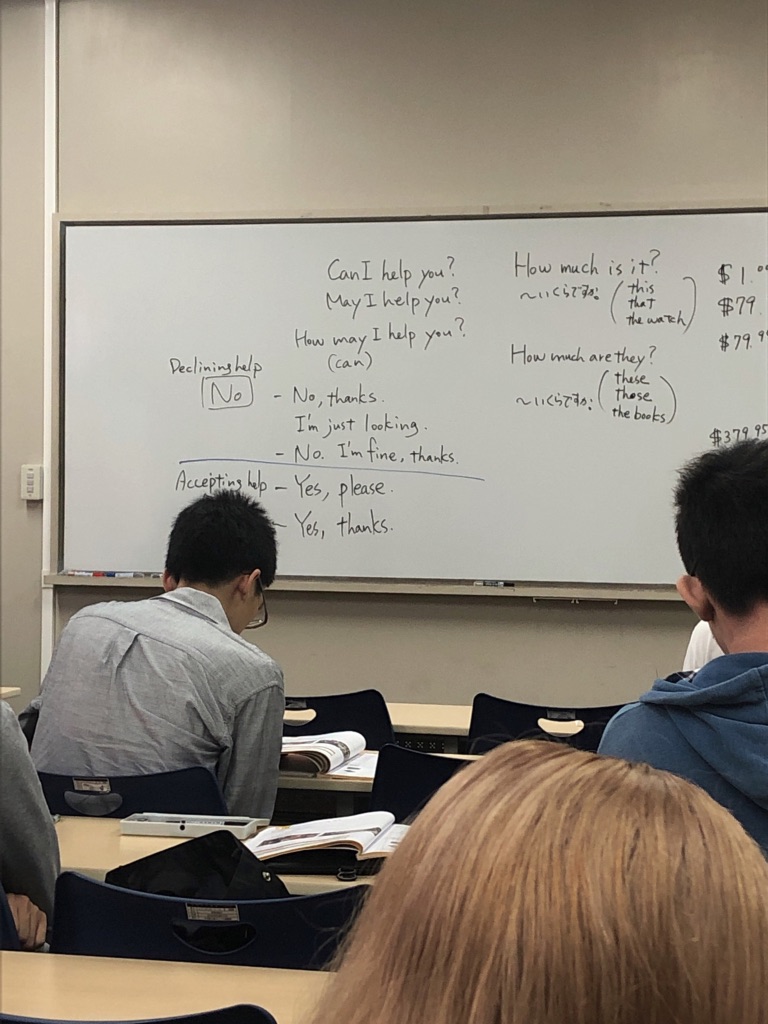 Can I help you?
May I help you?
How may I help you?
(can)
Declining help
No
- No, thanks.
I'm just looking.
- No. I'm fine, thanks.
Accepting help - Yes, please.
- Yes, thanks.
How much is it?
〜いくらですか?
(this
that
the watch)
How much are they?
〜いくらですか?
(these
those
the books)
$1.
$79.
$79.99
$379.95